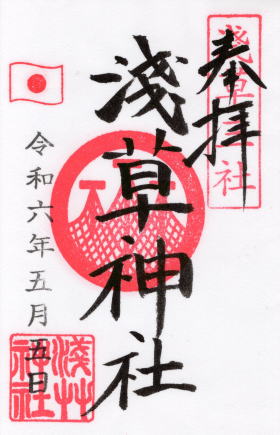 奉拝
淺草神社
淺草神社
令和六年五月五日
淺草神社